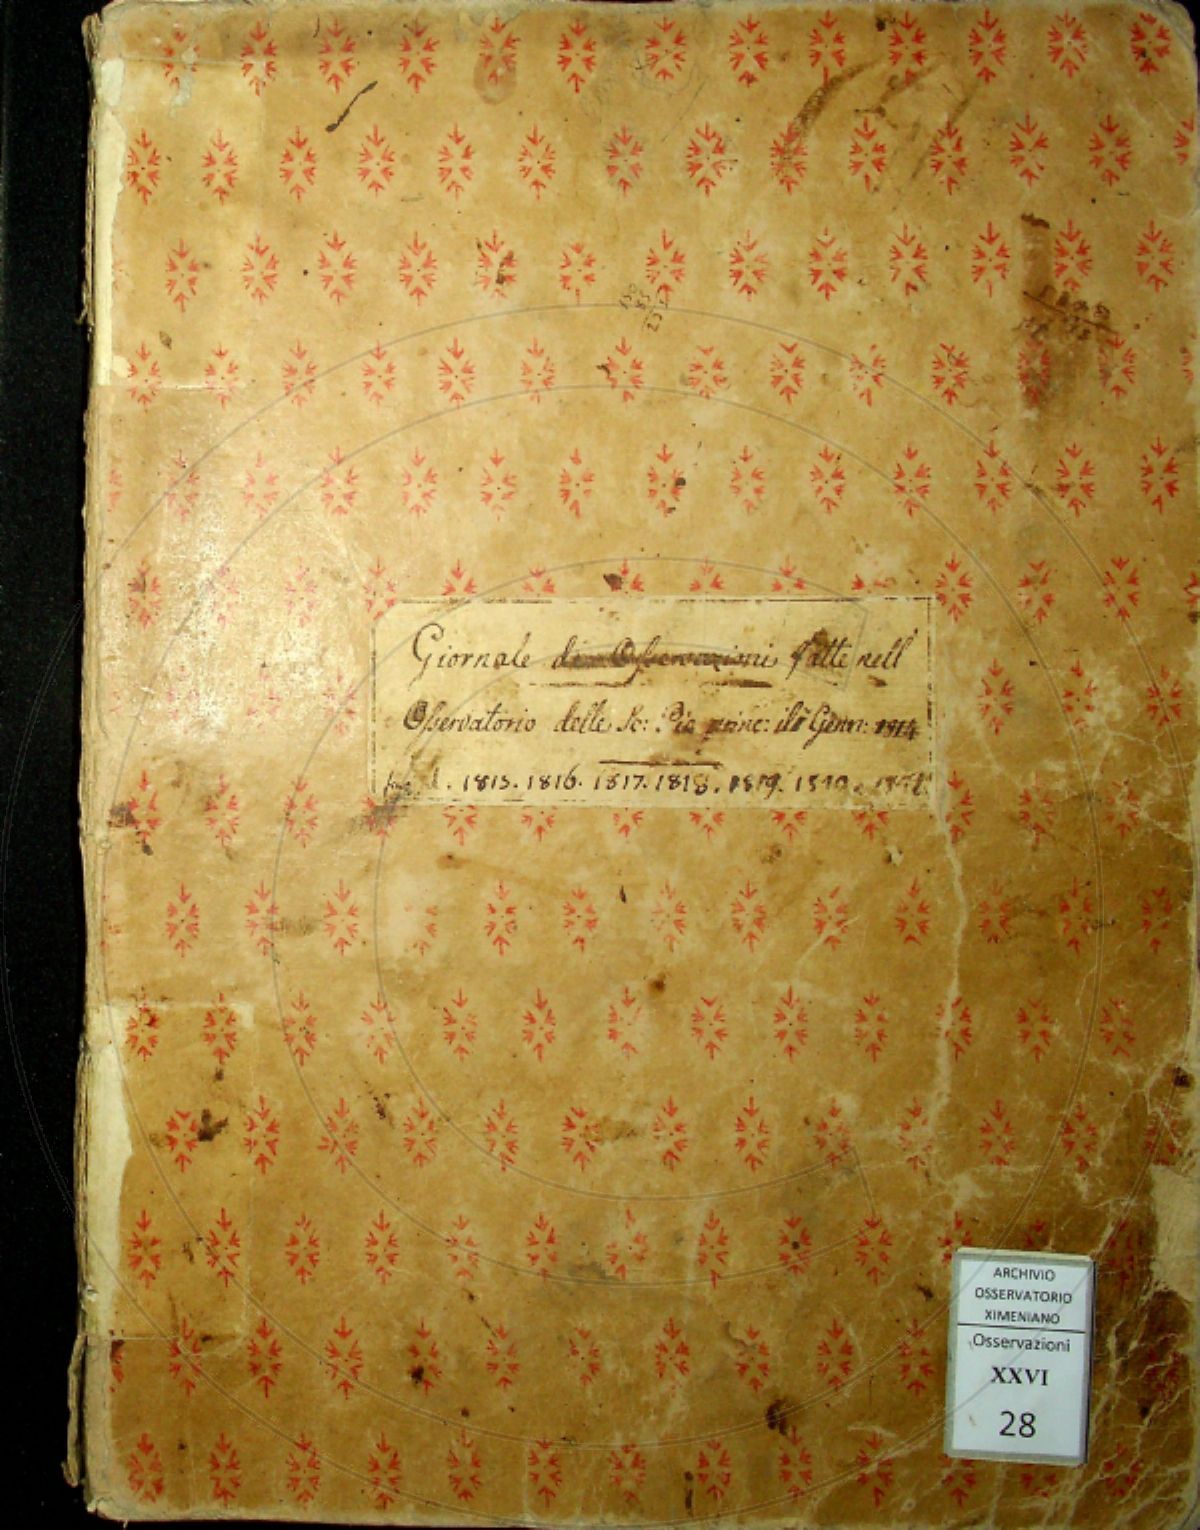 Giornale di Osservazioni fatte nell'
Osservatorio delle Sc: Pie princ: il 1° Genn: 1814
1815. 1816. 1817. 1818. 1819.
ARCHIVIO
OSSERVATORIO
XIMENIANO
Osservazioni
XXVI
28